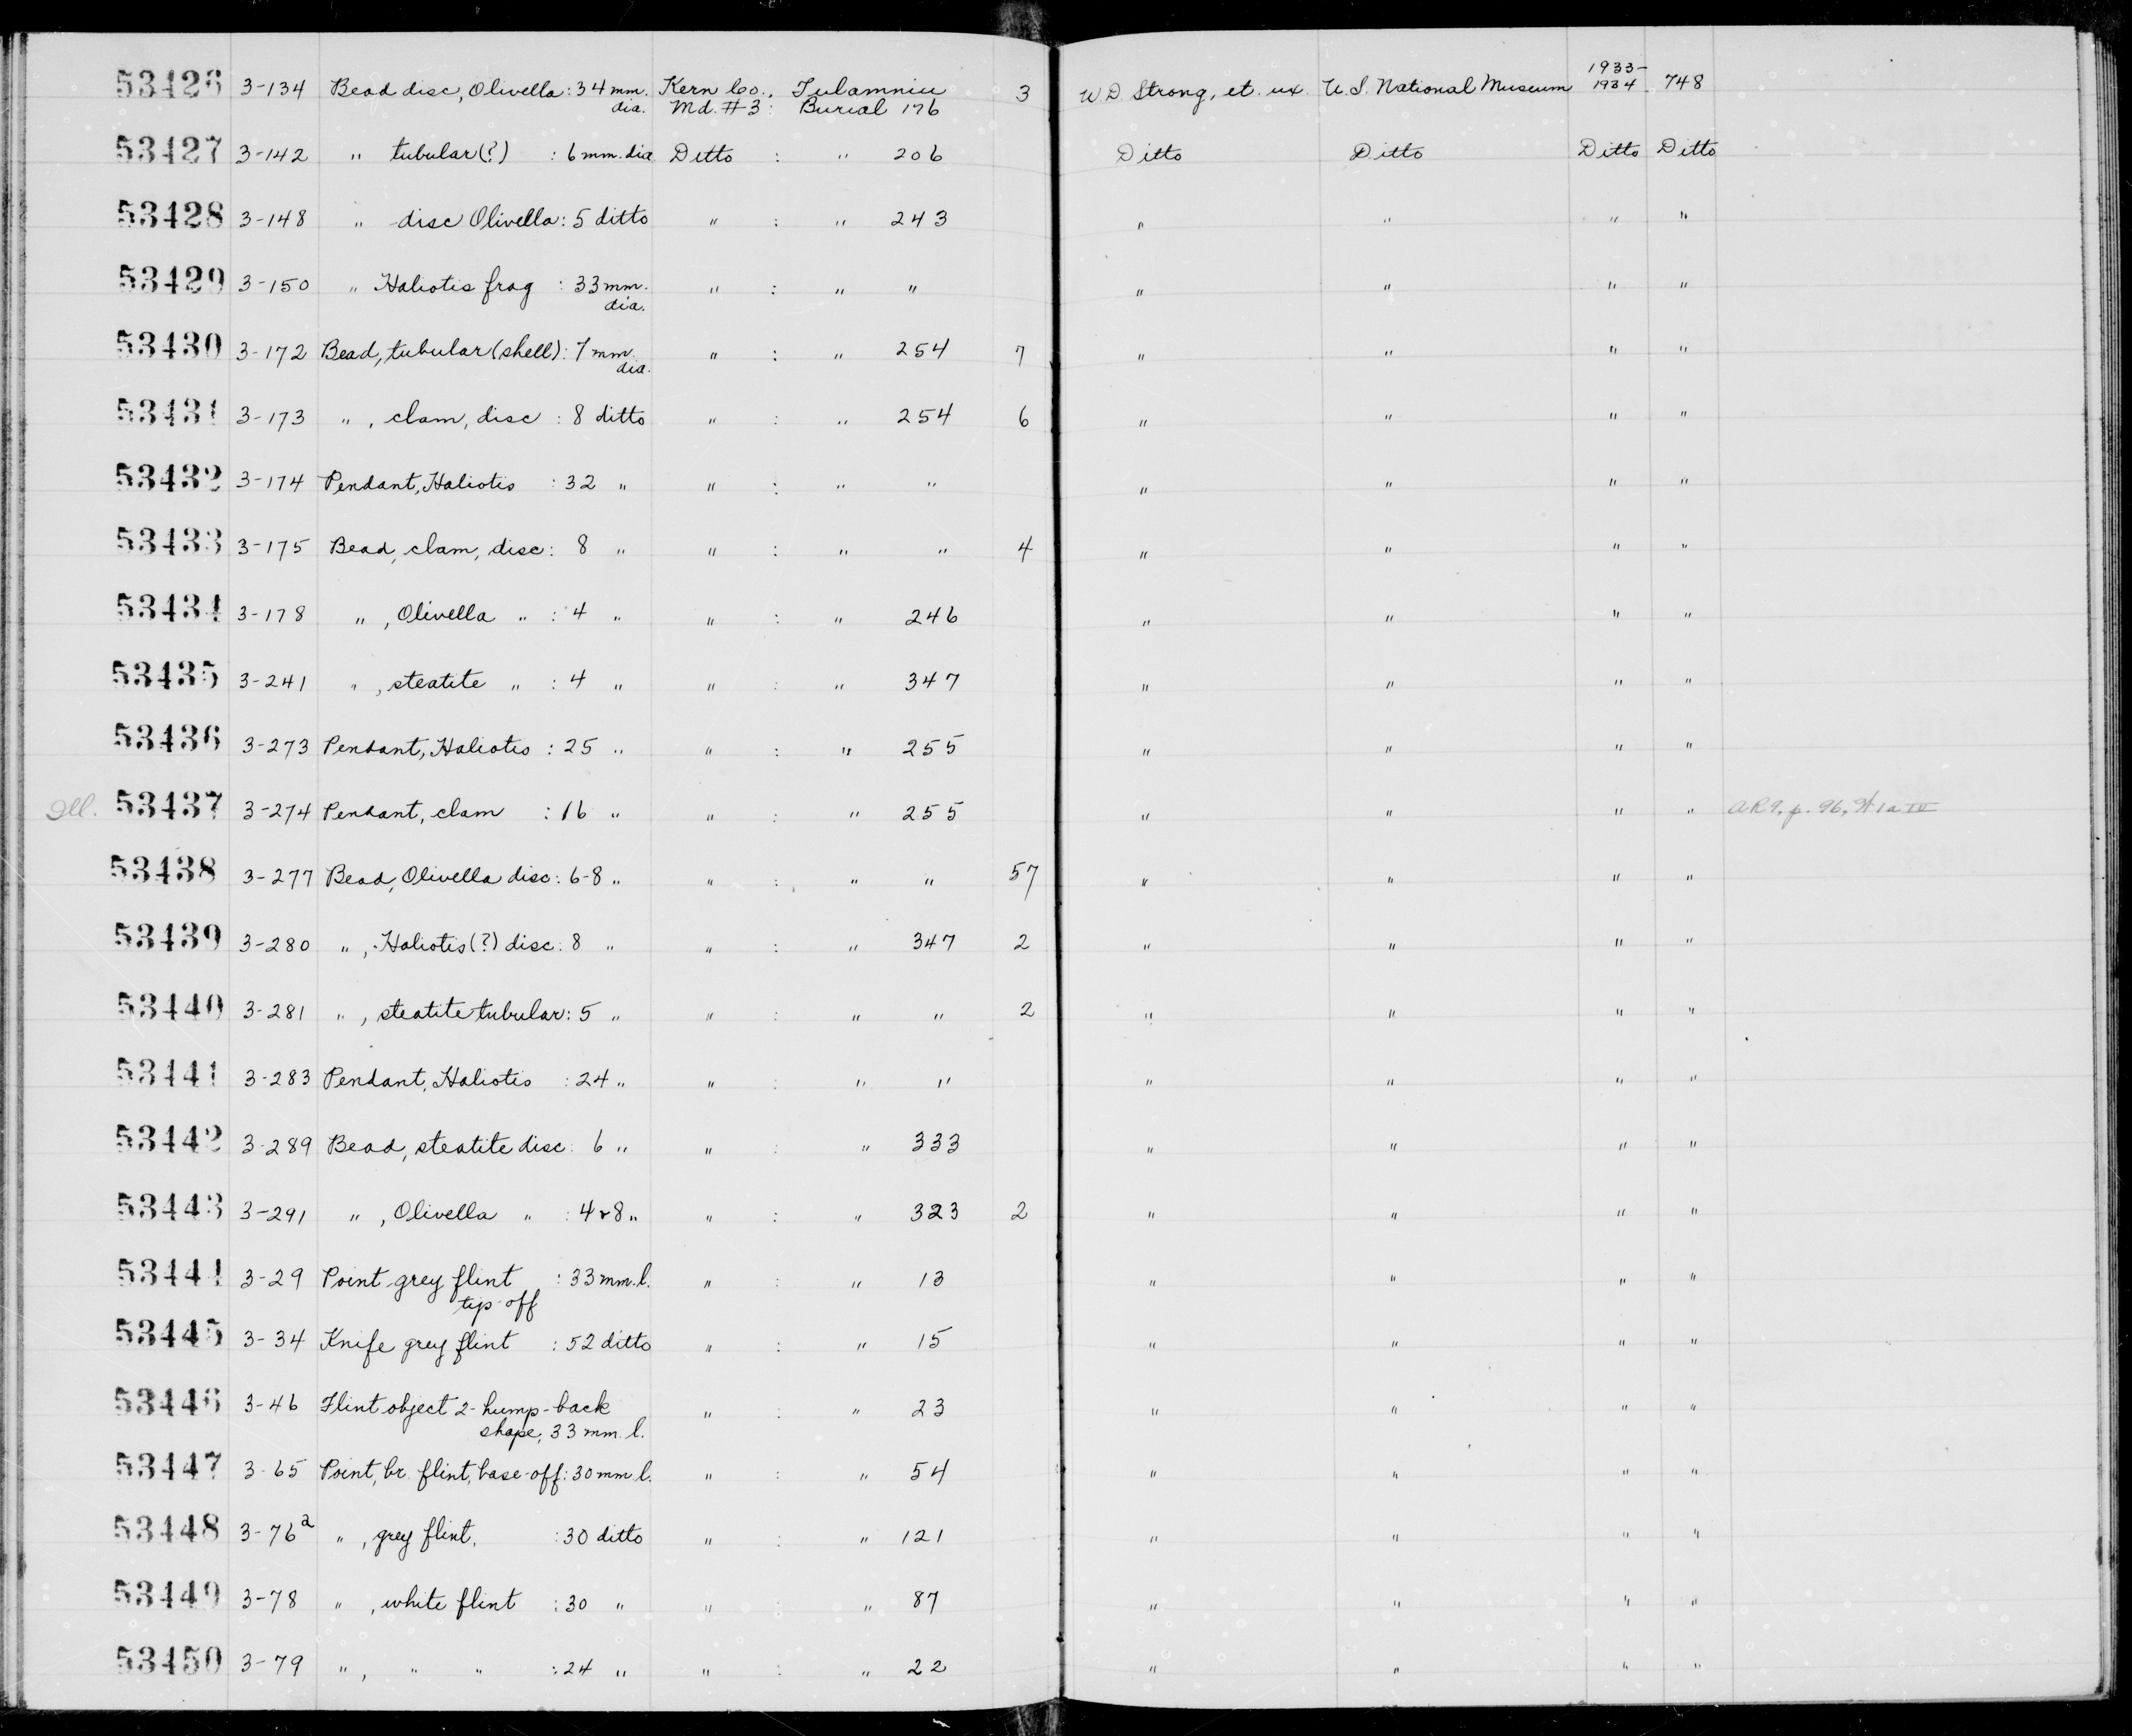 53426 3-134 Bead disc, Olivella : 34 mm. dia. Kern Co., Tulamniu Md. #3 : Burial 176 3 W D Strong, et. ux. U. S. National Museum 1933-1934 748
53427 3-142 " tubular(?) : 6 mm. dia Ditto : " 206 Ditto Ditto Ditto Ditto
53428 3-148 " disc Olivella : 5 ditto " : " 243 " " " "
53429 3-150 " Haliotis frag : 33 mm. dia. " : " " " " " "
53430 3-172 Bead, tubular (shell) : 7 mm. dia. " : " 254 7 " " " "
53431 3-173 " , clam, disc : 8 ditto " : " 254 6 " " " "
53432 3-174 Pendant, Haliotis : 32 " " : " " " " " "
53433 3-175 Bead, clam, disc : 8 " " : " " 4 " " " "
53434 3-178 " , Olivella " : 4 " " : " 246 " " " "
53435 3-241 " , steatite " : 4 " " : " 347 " " " "
53436 3-273 Pendant, Haliotis : 25 " " : " 255 " " " "
Ill. 53437 3-274 Pendant, clam : 16 " " : " 255 " " " " AR9, p. 96,
53438 3-277 Bead, Olivella disc : 6-8 " " : " " 57 " " " "
53439 3-280 " , Haliotis (?) disc : 8 " " : " 347 2 " " " "
53440 3-281 " , steatite tubular : 5 " " : " " 2 " " " "
53441 3-283 Pendant, Haliotis : 24 " " : " " " " " "
53442 3-289 Bead, steatite disc : 6 " " : " 333 " " " "
53443 3-291 " , Olivella " : 4 & 8 " " : " 323 2 " " " "
53444 3-29 Point grey flint tip-off : 33 mm. l. " : " 13 " " " "
53445 3-34 Knife grey flint : 52 ditto " : " 15 " " " "
53446 3-46 Flint object 2-hump-back shape, 33 mm. l. " : " 23 " " " "
53447 3-65 Point, br. flint, base-off : 30 mm l. " : " 54 " " " "
53448 3-76a " , grey flint, : 30 ditto " : " 121 " " " "
53449 3-78 " , white flint : 30 " " : " 87 " " " "
53450 3-79 " , " " : 24 " " : " 22 " " " "